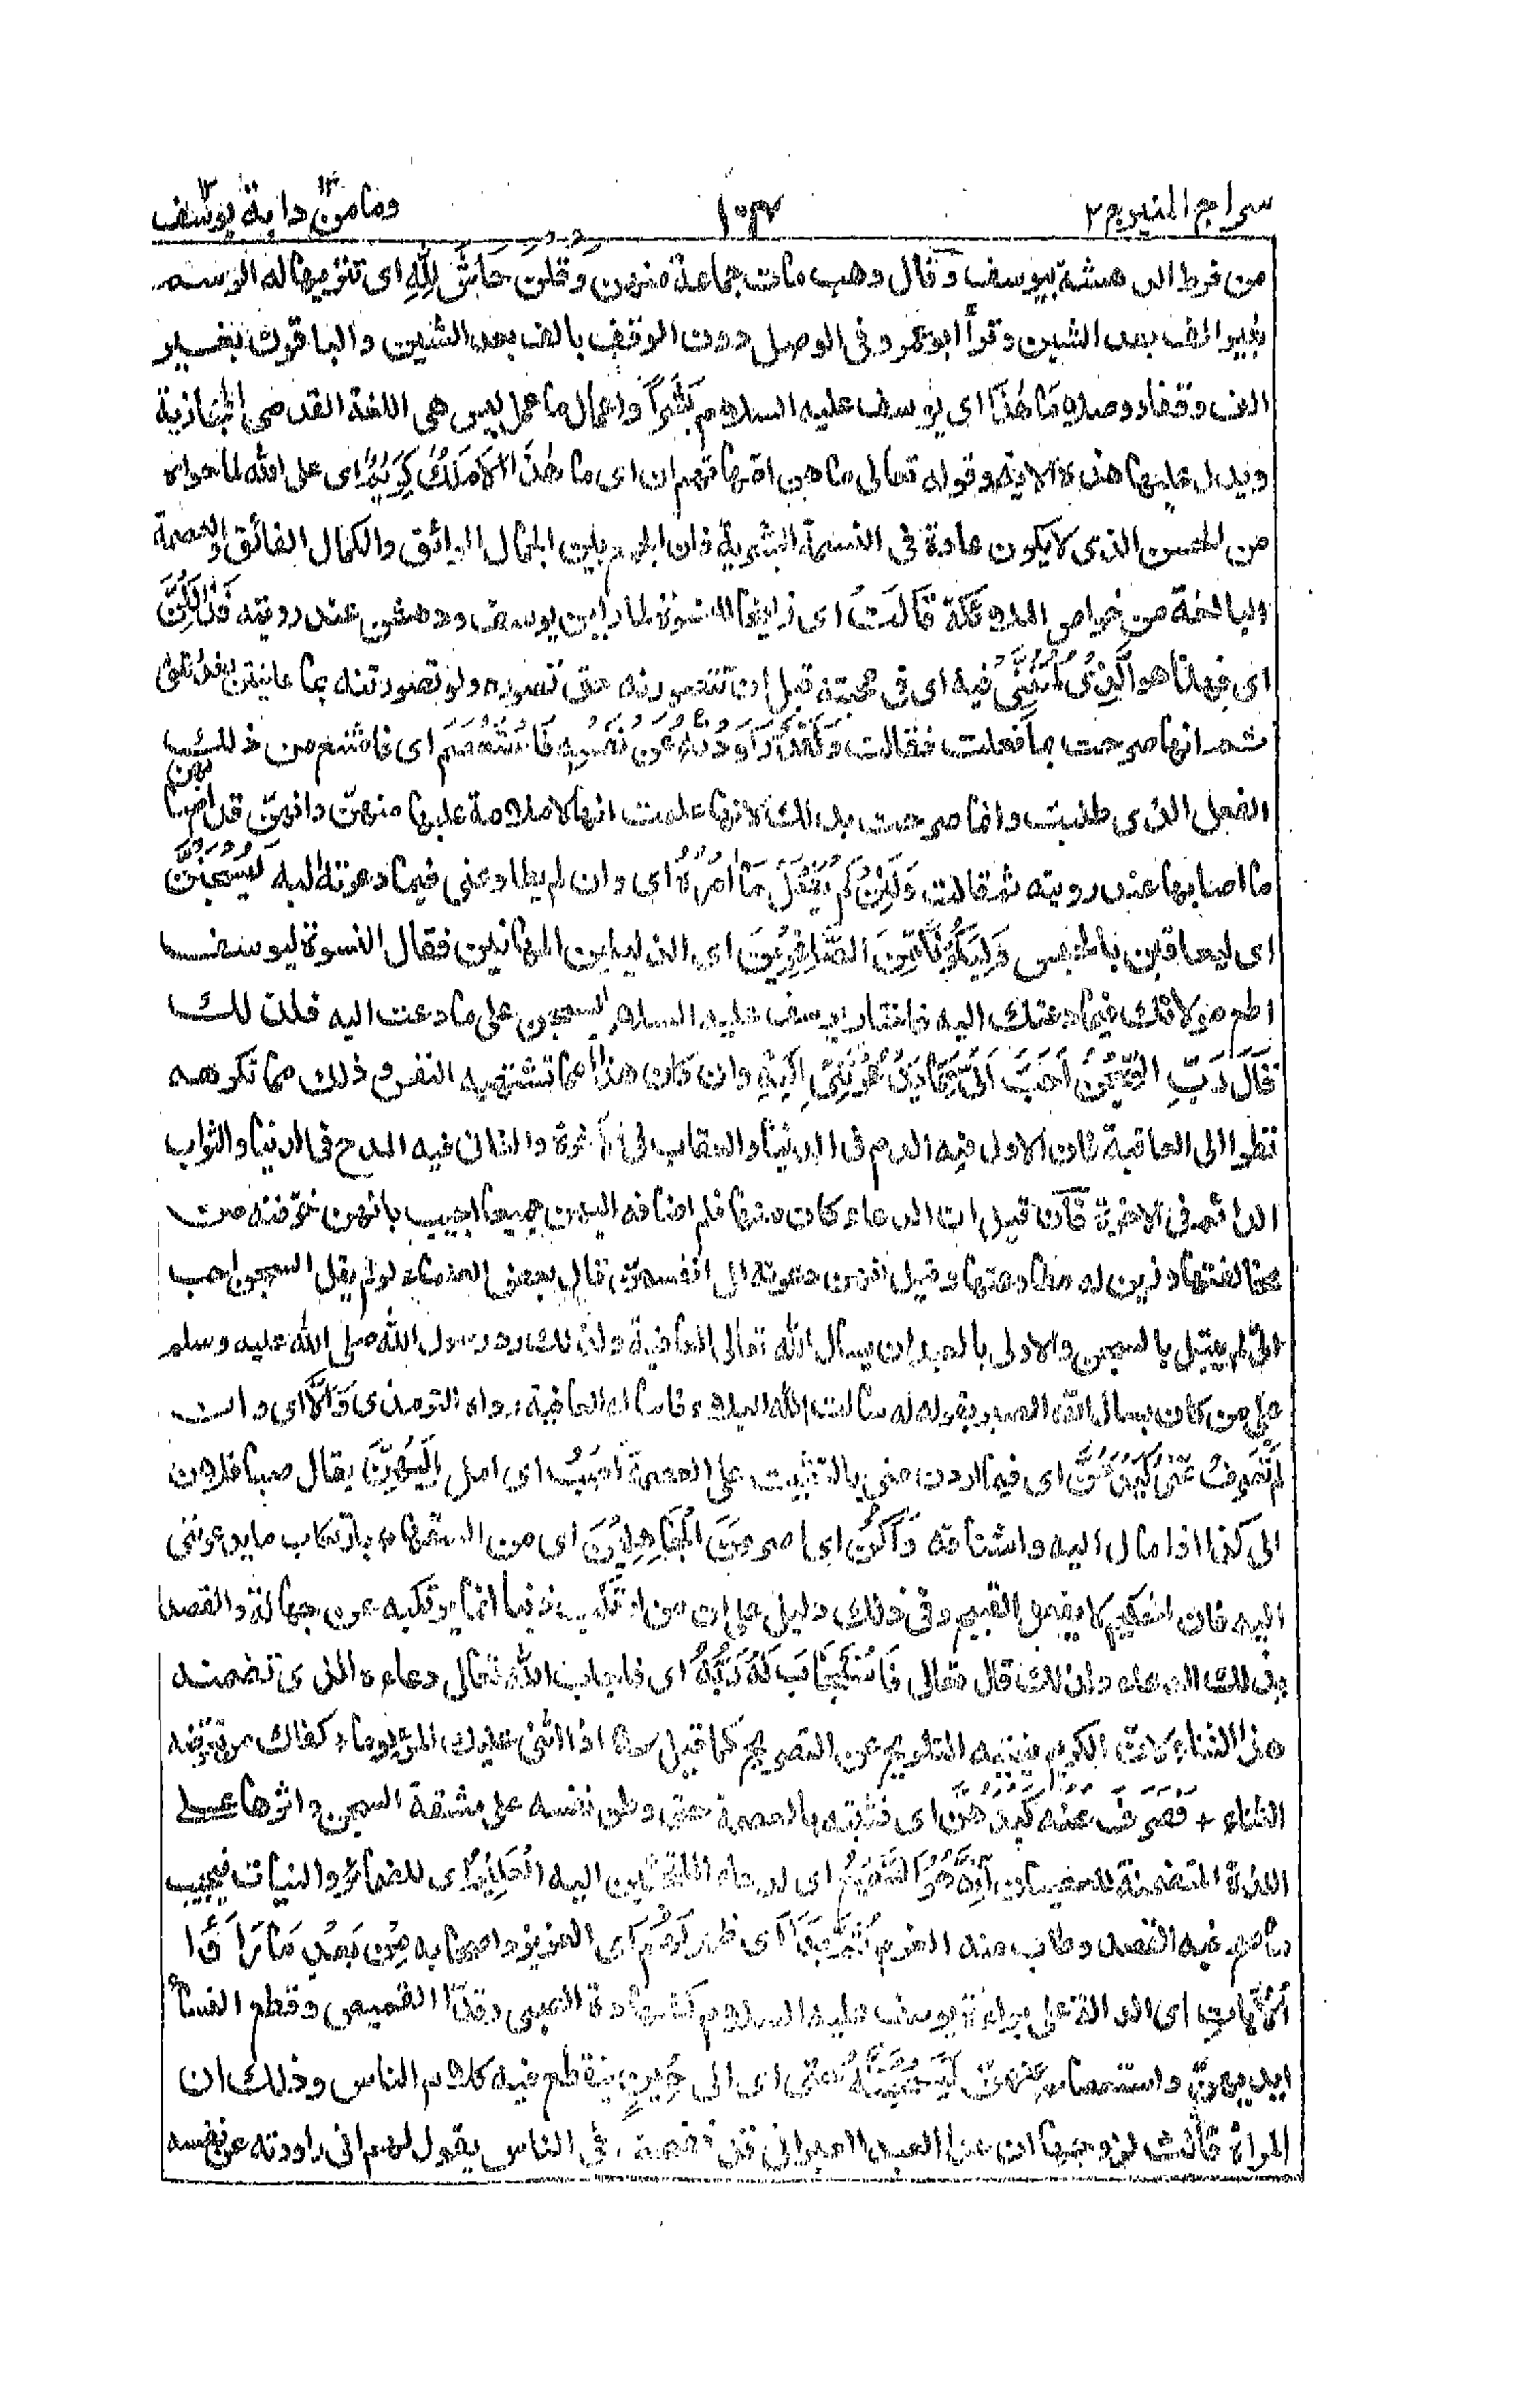 سراج المنير ج ٢ ١٠٣ وما من دابة ١٢ يوسف ١٢
من فرط الدهشة بيوسف وقال وهب ماتت جماعة منهن وقلن حَاشَ لِلّٰهِ اى تنزيها له الرسم
بغير الف بعد الشين وقرأ ابو عمرو فى الوصل دون الوقف بالف بعد الشين والباقون بغير
الف وقفا ووصلا مَا هٰذَا اى يوسف عليه السلام بَشَرًا واعمال ما عمل ليس هى اللغة القدمى الحجازية
ويدل عليها هذه الاية وقوله تعالى ما هن امهاتهم ان اى ما هٰذَا اِلَّا مَلَكٌ كَرِيْمٌ اى على الله لما حواه
من الحسن الذى لا يكون عادة فى النسمة البشرية فان الجمع بين الجمال الرائق والكمال الفائق والعصمة
البالغة من خواص الملائكة قَالَتْ اى زليخا للنسوة لما راين يوسف ودهشن عند رويته فَذٰلِكُنَّ
اى فهذا هو الَّذِىْ لُمْتُنَّنِىْ فِيْهِ اى فى محبته قبل ان تتصورنه حق تصوره ولو تصورتنه بما عاينتن لعذرتننى
ثم انها صرحت بما فعلت فقالت وَلَقَدْ رَاوَدْتُّهٗ عَنْ نَفْسِهٖ فَاسْتَعْصَمَ اى فامتنع من ذلك
الفعل الذى طلبت وانما صرحت بذلك لانها علمت انها لا ملامة عليها منهن وانهن قد اصابهن
ما اصابها عند رويته ثم قالت وَلَئِنْ لَّمْ يَفْعَلْ مَا اٰمُرُهٗ اى وان لم يطاوعنى فيما دعوته اليه لَيُسْجَنَنَّ
اى ليعاقبن بالحبس وَلَيَكُوْنًا مِّنَ الصَّاغِرِيْنَ اى الذليلين المهانين فقال النسوة ليوسف
اطع مولاتك فيما دعتك اليه فاختار يوسف عليه السلام السجن على ما دعت اليه فلذلك
قَالَ رَبِّ السِّجْنُ اَحَبُّ اِلَىَّ مِمَّا يَدْعُوْنَنِىْ اِلَيْهِ وان كان هذا مما تشتهيه النفس وذلك مما تكرهه
نظرا الى العاقبة فان الاول فيه الذم فى الدنيا والعقاب فى الاخرة والثانى فيه المدح فى الدنيا والثواب
الدائم فى الاخرة فان قيل ان الدعاء كان منها فلم اضافه اليهن جميعا اجيب بانهن خوفنه من
مخالفتها وزين له مطاوعتها وقيل انهن دعونه الى انفسهن قال بعض العلماء لو لم يقل السجن احب
الى لم يبتل بالسجن والاولى بالعبد ان يسأل الله تعالى العافية ولذلك رد رسول الله صلى الله عليه وسلم
على من كان يسال الله الصبر بقوله له سالت الله البلاء فاساله العافية رواه الترمذى وَاِلَّا اى وان
لم تَصْرِفْ عَنِّىْ كَيْدَهُنَّ اى فيما اردن منى بالتثبيت على العصمة اَصْبُ اى امل اِلَيْهِنَّ يقال صبا فلان
الى كذا اذا مال اليه واشتاقه وَاَكُنْ اى اصر مِنَ الْجَاهِلِيْنَ اى من السفهاء بارتكاب ما يدعوننى
اليه فان الحكيم لا يفعل القبيح وفى ذلك دليل على ان من ارتكب ذنبا انما يرتكبه عن جهالة والقصد
بذلك الدعاء ولذلك قال تعالى فَاسْتَجَابَ لَهٗ رَبُّهٗ اى فاجاب الله تعالى دعاءه الذى تضمنه
هذا الثناء لان الكريم يغنيه التلويح عن التصريح كما قيل اذا اثنى عليك المرء يوما كفاك من تعرضه
الثناء + فَصَرَفَ عَنْهُ كَيْدَهُنَّ اى فثبته بالعصمة حتى وطن نفسه على مشقة السجن واثرها على
اللذة المتضمنة للعصيان اِنَّهٗ هُوَ السَّمِيْعُ اى لدعاء الملتجئين اليه الْعَلِيْمُ اى للضمائر والنيات فيجيب
ما صح فيه القصد وطاب منه العزم ثُمَّ بَدَا اى ظهر لَهُمْ اى العزيز واصحابه مِنْ بَعْدِ مَا رَاَوُا
الْاٰيَاتِ اى الدالة على براءة يوسف عليه السلام كشهادة الصبى وقد القميص وقطع النساء
ايديهن واستعصامه عنهن لَيَسْجُنُنَّهٗ حَتّٰى اى الى حِيْنٍ ينقطع فيه كلام الناس وذلك ان
المراة قالت لزوجها ان هذا العبد العبرانى قد فضحنى فى الناس يقول لهم انى راودته عن نفسه